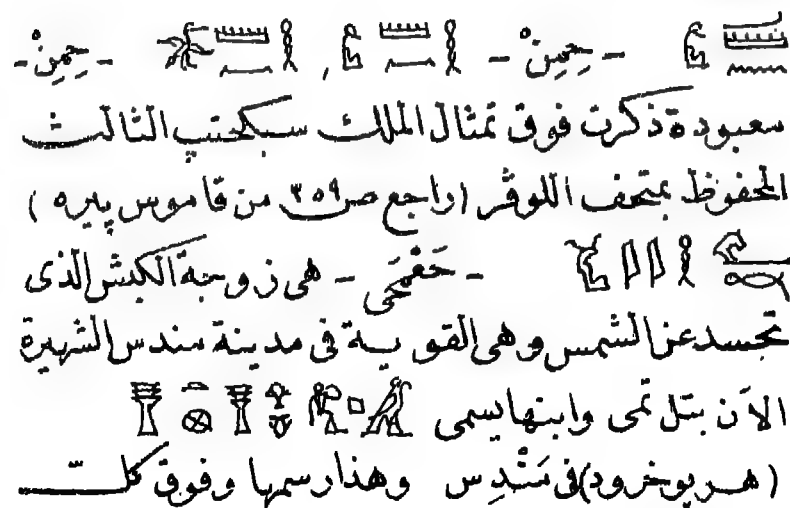 - حِمِنْ - ، - حِمِنْ -
معبودة ذكرت فوق تمثال الملك سبكحتب الثالث
المحفوظ بمتحف اللوڤر (راجع ص ٣٥٩ من قاموس پيره)
- حَفْمَحى - هى زوجة الكبش الذى
تجسد عن الشمس وهى القوية فى مدينة مندس الشهيرة
الآن بتل تمى وابنها يسمى
(هر بوخرود) فى مَنْدِس وهذا رسمها وفوق كلت